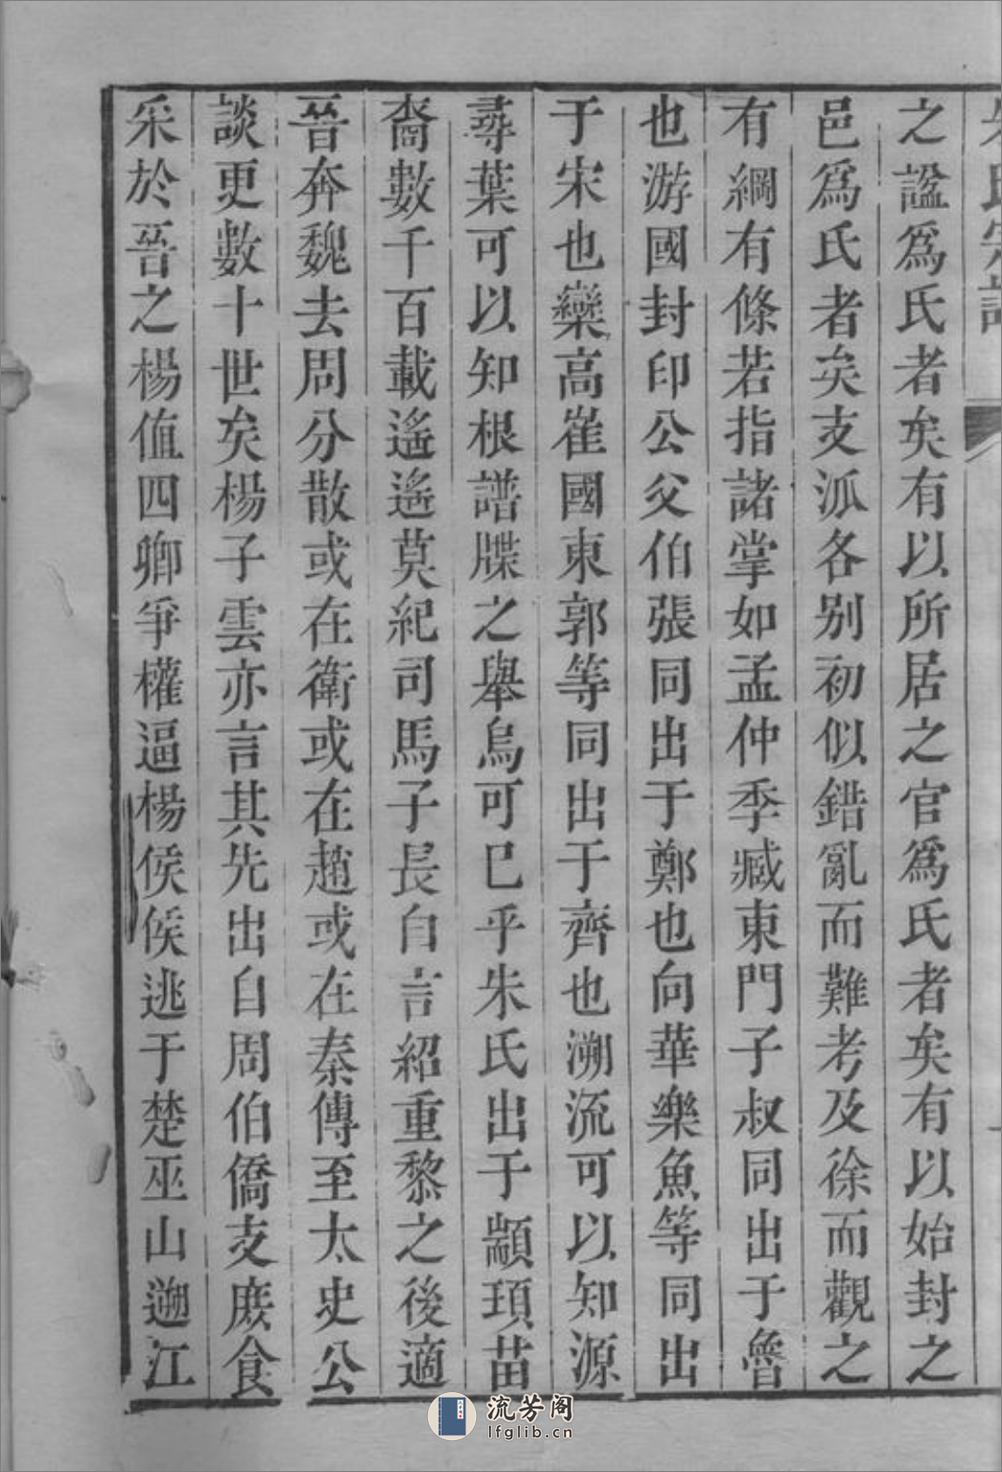 氏宗譜
之諡爲氏者矣有以所居之官爲氏者矣有以始封之
邑爲氏者矣支派各别初似錯亂而難考及徐而觀之
有綱有條若指諸掌如孟仲季臧東門子叔同出于魯
也游國封印公父伯張同出于鄭也向華樂魚等同出
于宋也欒高崔國東郭等同出于齊也溯流可以知源
尋葉可以知根譜牒之舉烏可已乎朱氏出于顓頊苗
裔數千百載遙遙莫紀司馬子長自言紹重黎之後適
晉奔魏去周分散或在衛或在趙或在秦傳至太史公
談更數十世矣楊子雲亦言其先出自周伯僑支庶食
采於晉之楊值四卿爭權逼楊侯侯逃于楚巫山遡江
流芳阁
lfglib.cn